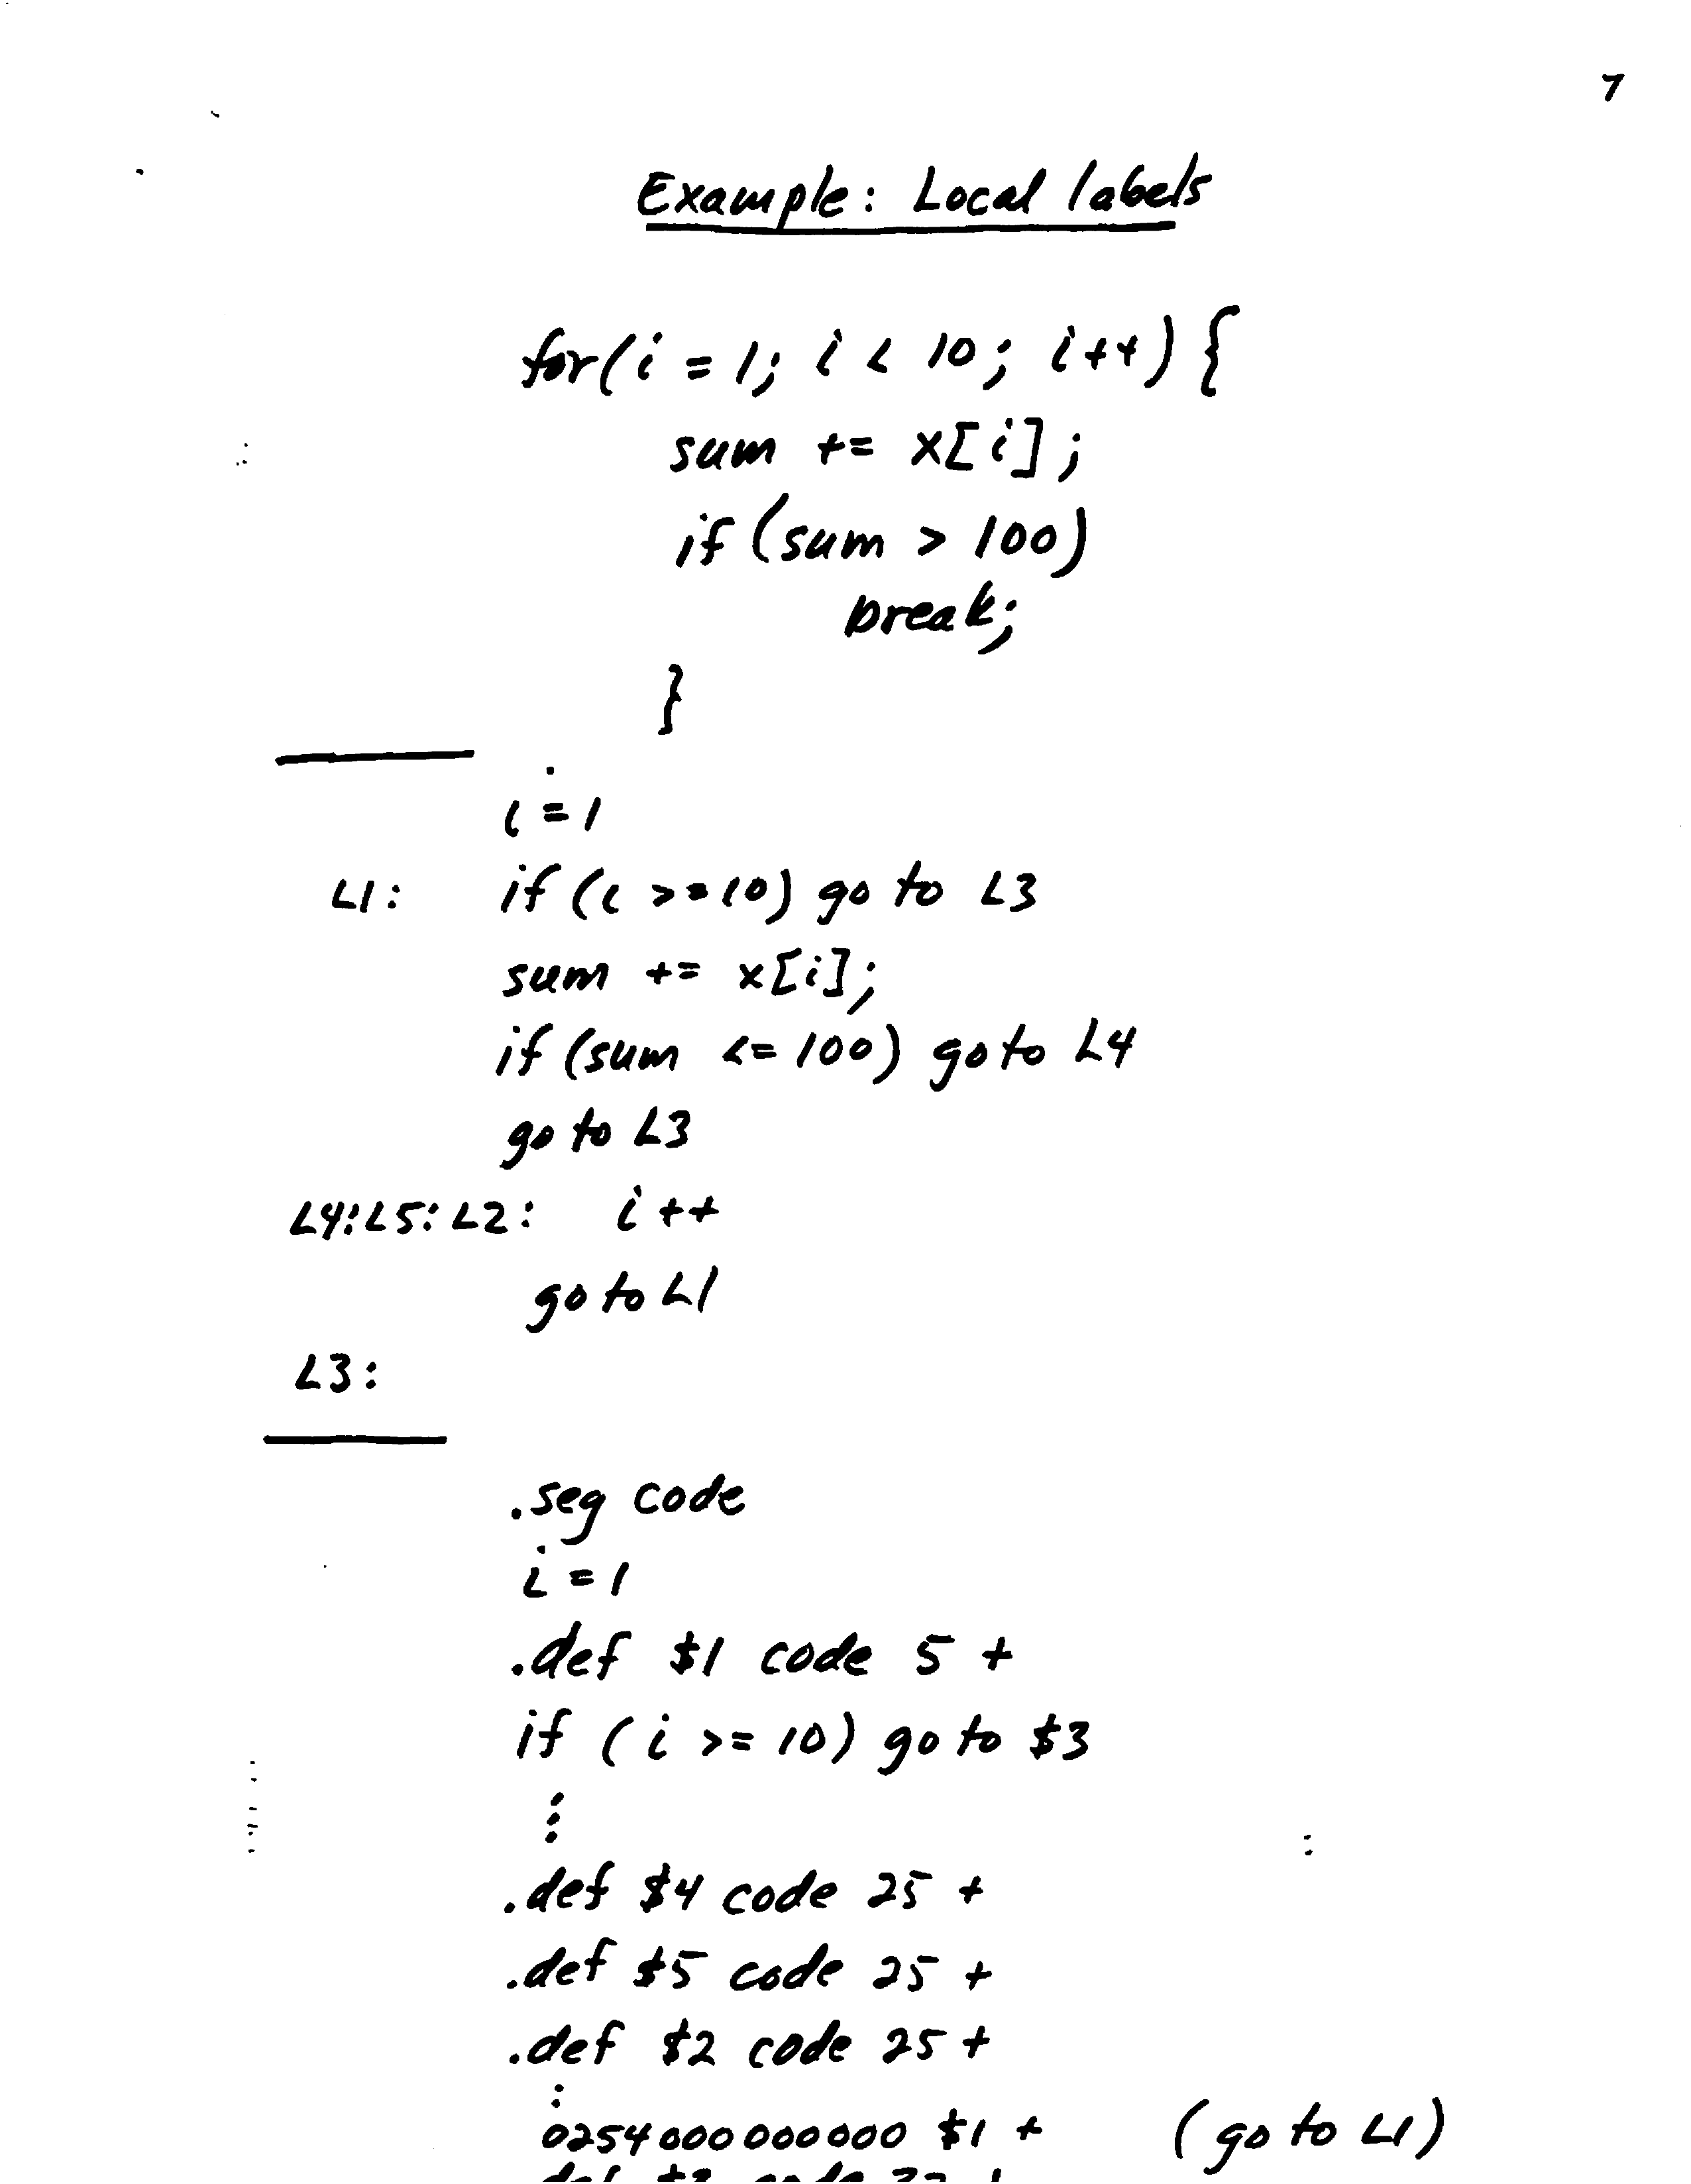 7
Example: Local labels
for(i = 1; i < 10; i++) {
sum += x[i];
if (sum > 100)
break;
}
i = 1
L1: if (i >= 10) go to L3
sum += x[i];
if (sum <= 100) go to L4
go to L3
L4: L5: L2: i++
go to L1
L3:
.seg code
i = 1
.def $1 code 5 +
if (i >= 10) go to $3
⋮
.def $4 code 25 +
.def $5 code 25 +
.def $2 code 25 +
:
0254000000000 $1 + (go to L1)